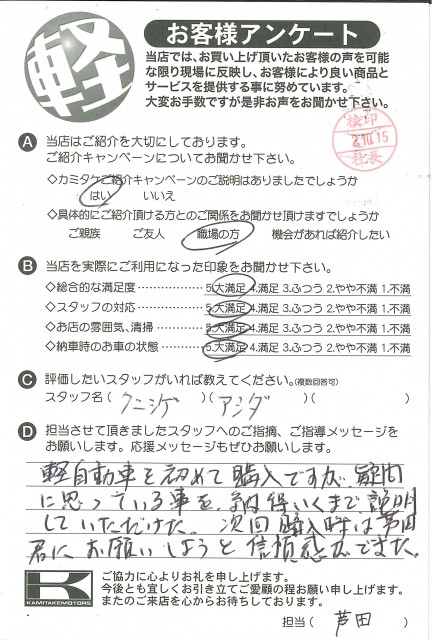 軽
お客様アンケート
当店では、お買い上げ頂いたお客様の声を可能
な限り現場に反映し、お客様により良い商品と
サービスを提供する事に努めています。
大変お手数ですが是非お声をお聞かせ下さい。
検印
2.10.15
社長
A 当店はご紹介を大切にしております。
ご紹介キャンペーンについてお聞かせ下さい。
◇カミタケご紹介キャンペーンのご説明はありましたでしょうか
はい いいえ
◇具体的にご紹介頂ける方とのご関係をお聞かせ頂けますでしょうか
ご親族 ご友人 職場の方 機会があれば紹介したい
B 当店を実際にご利用になった印象をお聞かせ下さい。
◇総合的な満足度……………5.大満足 4.満足 3.ふつう 2.やや不満 1.不満
◇スタッフの対応……………5.大満足 4.満足 3.ふつう 2.やや不満 1.不満
◇お店の雰囲気、清掃………5.大満足 4.満足 3.ふつう 2.やや不満 1.不満
◇納車時のお車の状態………5.大満足 4.満足 3.ふつう 2.やや不満 1.不満
C 評価したいスタッフがいれば教えてください。(複数回答可)
スタッフ名(クニシゲ)(アシダ)( )
D 担当させて頂きましたスタッフへのご指摘、ご指導メッセージを
お願いします。応援メッセージもぜひお願いします。
軽自動車を初めて購入ですが、疑問
に思っている事を、納得いくまで説明
していただけた。次回購入時は芦田
君にお願いしようと信頼感ができた。
K
KAMITAKEMOTORS
ご協力に心よりお礼を申し上げます。
今後とも宜しくお引き立てご愛顧の程お願い申し上げます。
またのご来店を心からお待ちしております。
担当(芦田)